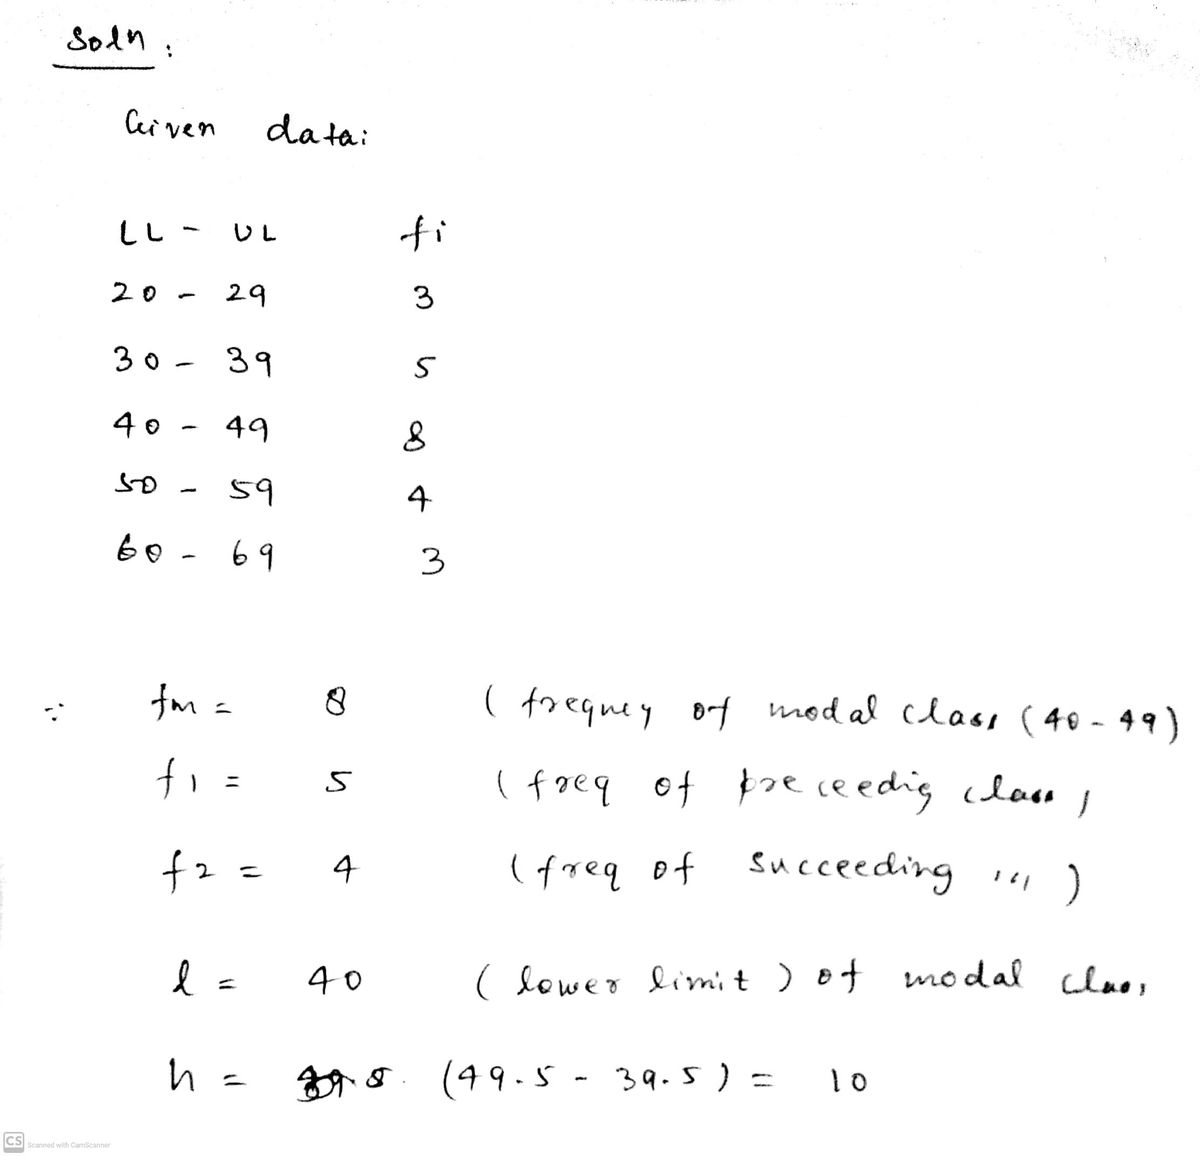 Soln :
Given data:
LL - UL fi
20 - 29 3
30 - 39 5
40 - 49 8
50 - 59 4
60 - 69 3
∵ fm = 8 ( frequey of modal class (40 - 49)
f1 = 5 ( freq of preceedig class )
f2 = 4 ( freq of succeeding 〃 )
l = 40 ( lower limit ) of modal class
h = (49.5 - 39.5) = 10
CS Scanned with CamScanner